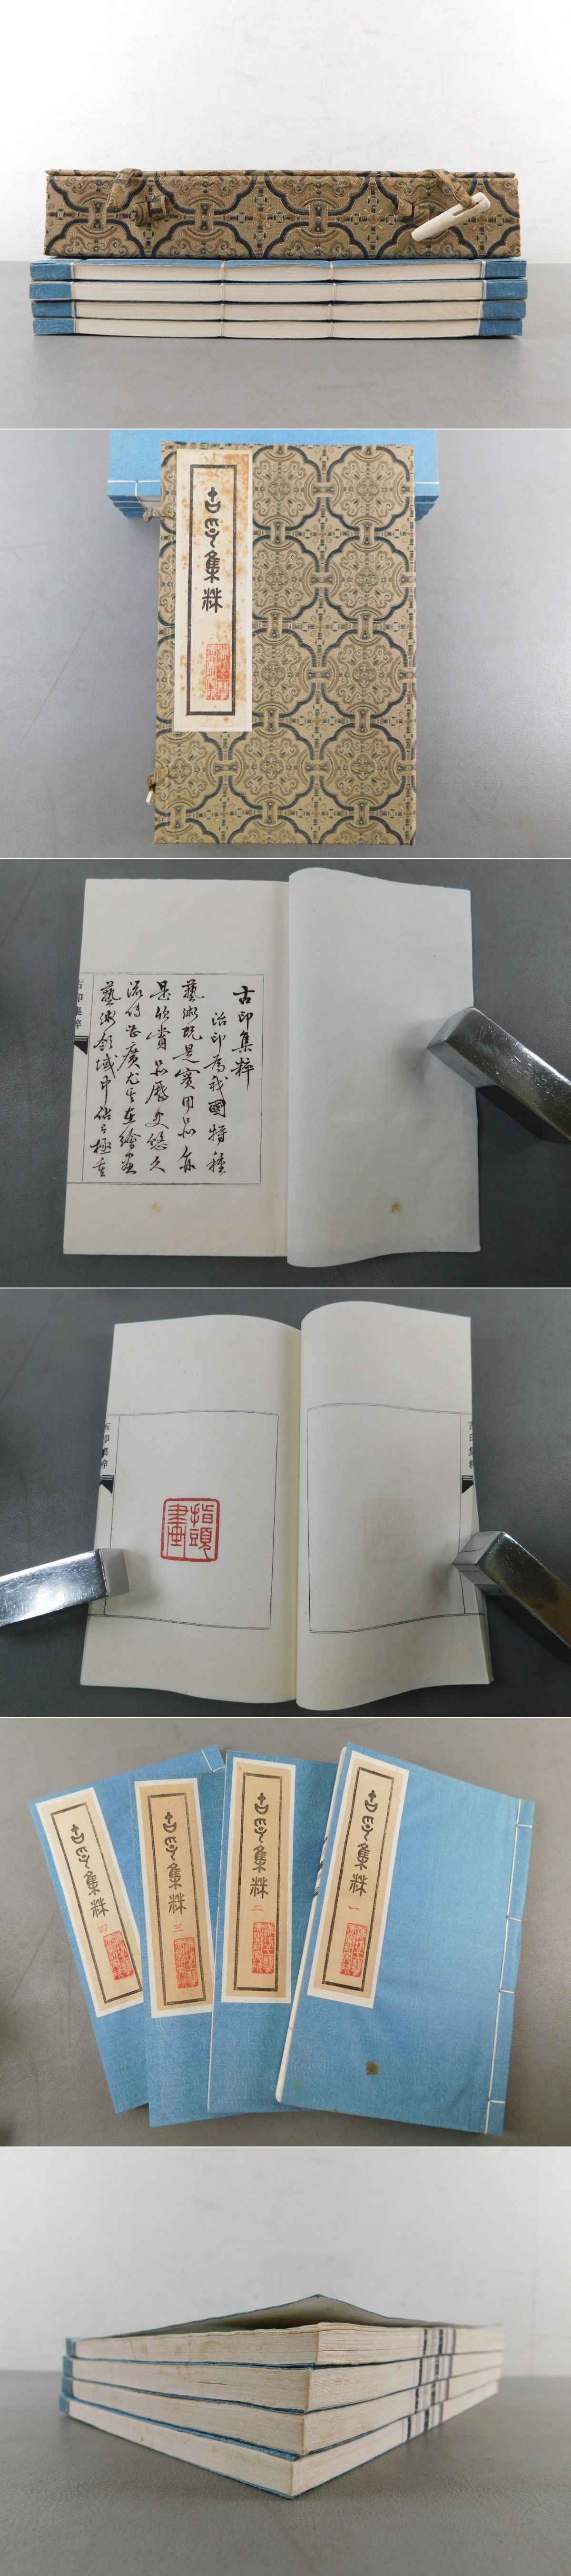 古印集粹
古印集粹
古印集粹
治印為我國特種
藝術既是實用品亦
是欣賞品歷史悠久
流傳甚廣尤其在繪畫
藝術領域中佔了極重
古印集粹
指頭
畫
古印集粹
古印集粹
一
古印集粹
二
古印集粹
三
古印集粹
四